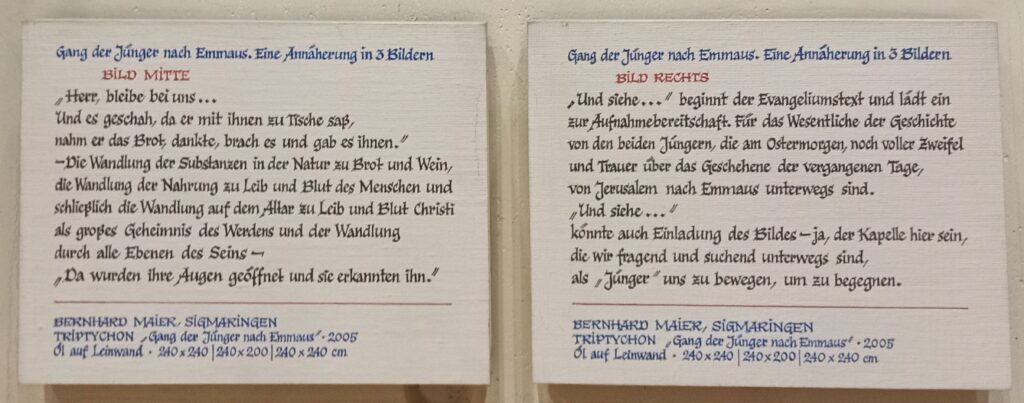 Gang der Jünger nach Emmaus. Eine Annäherung in 3 Bildern
BILD MITTE
„Herr, bleibe bei uns...
Und es geschah, da er mit ihnen zu Tische saß,
nahm er das Brot, dankte, brach es und gab es ihnen."
—Die Wandlung der Substanzen in der Natur zu Brot und Wein,
die Wandlung der Nahrung zu Leib und Blut des Menschen und
schließlich die Wandlung auf dem Altar zu Leib und Blut Christi
als großes Geheimnis des Werdens und der Wandlung
durch alle Ebenen des Seins —
„Da wurden ihre Augen geöffnet und sie erkannten ihn."
BERNHARD MAIER, SIGMARINGEN
TRIPTYCHON „Gang der Jünger nach Emmaus" · 2005
Öl auf Leinwand · 240 x 240 | 240 x 200 | 240 x 240 cm
Gang der Jünger nach Emmaus. Eine Annäherung in 3 Bildern
BILD RECHTS
„Und siehe..." beginnt der Evangeliumstext und lädt ein
zur Aufnahmebereitschaft. Für das Wesentliche der Geschichte
von den beiden Jüngern, die am Ostermorgen, noch voller Zweifel
und Trauer über das Geschehene der vergangenen Tage,
von Jerusalem nach Emmaus unterwegs sind.
„Und siehe..."
könnte auch Einladung des Bildes — ja, der Kapelle hier sein,
die wir fragend und suchend unterwegs sind,
als „Jünger" uns zu bewegen, um zu begegnen.
BERNHARD MAIER, SIGMARINGEN
TRIPTYCHON „Gang der Jünger nach Emmaus" · 2005
Öl auf Leinwand · 240 x 240 | 240 x 200 | 240 x 240 cm